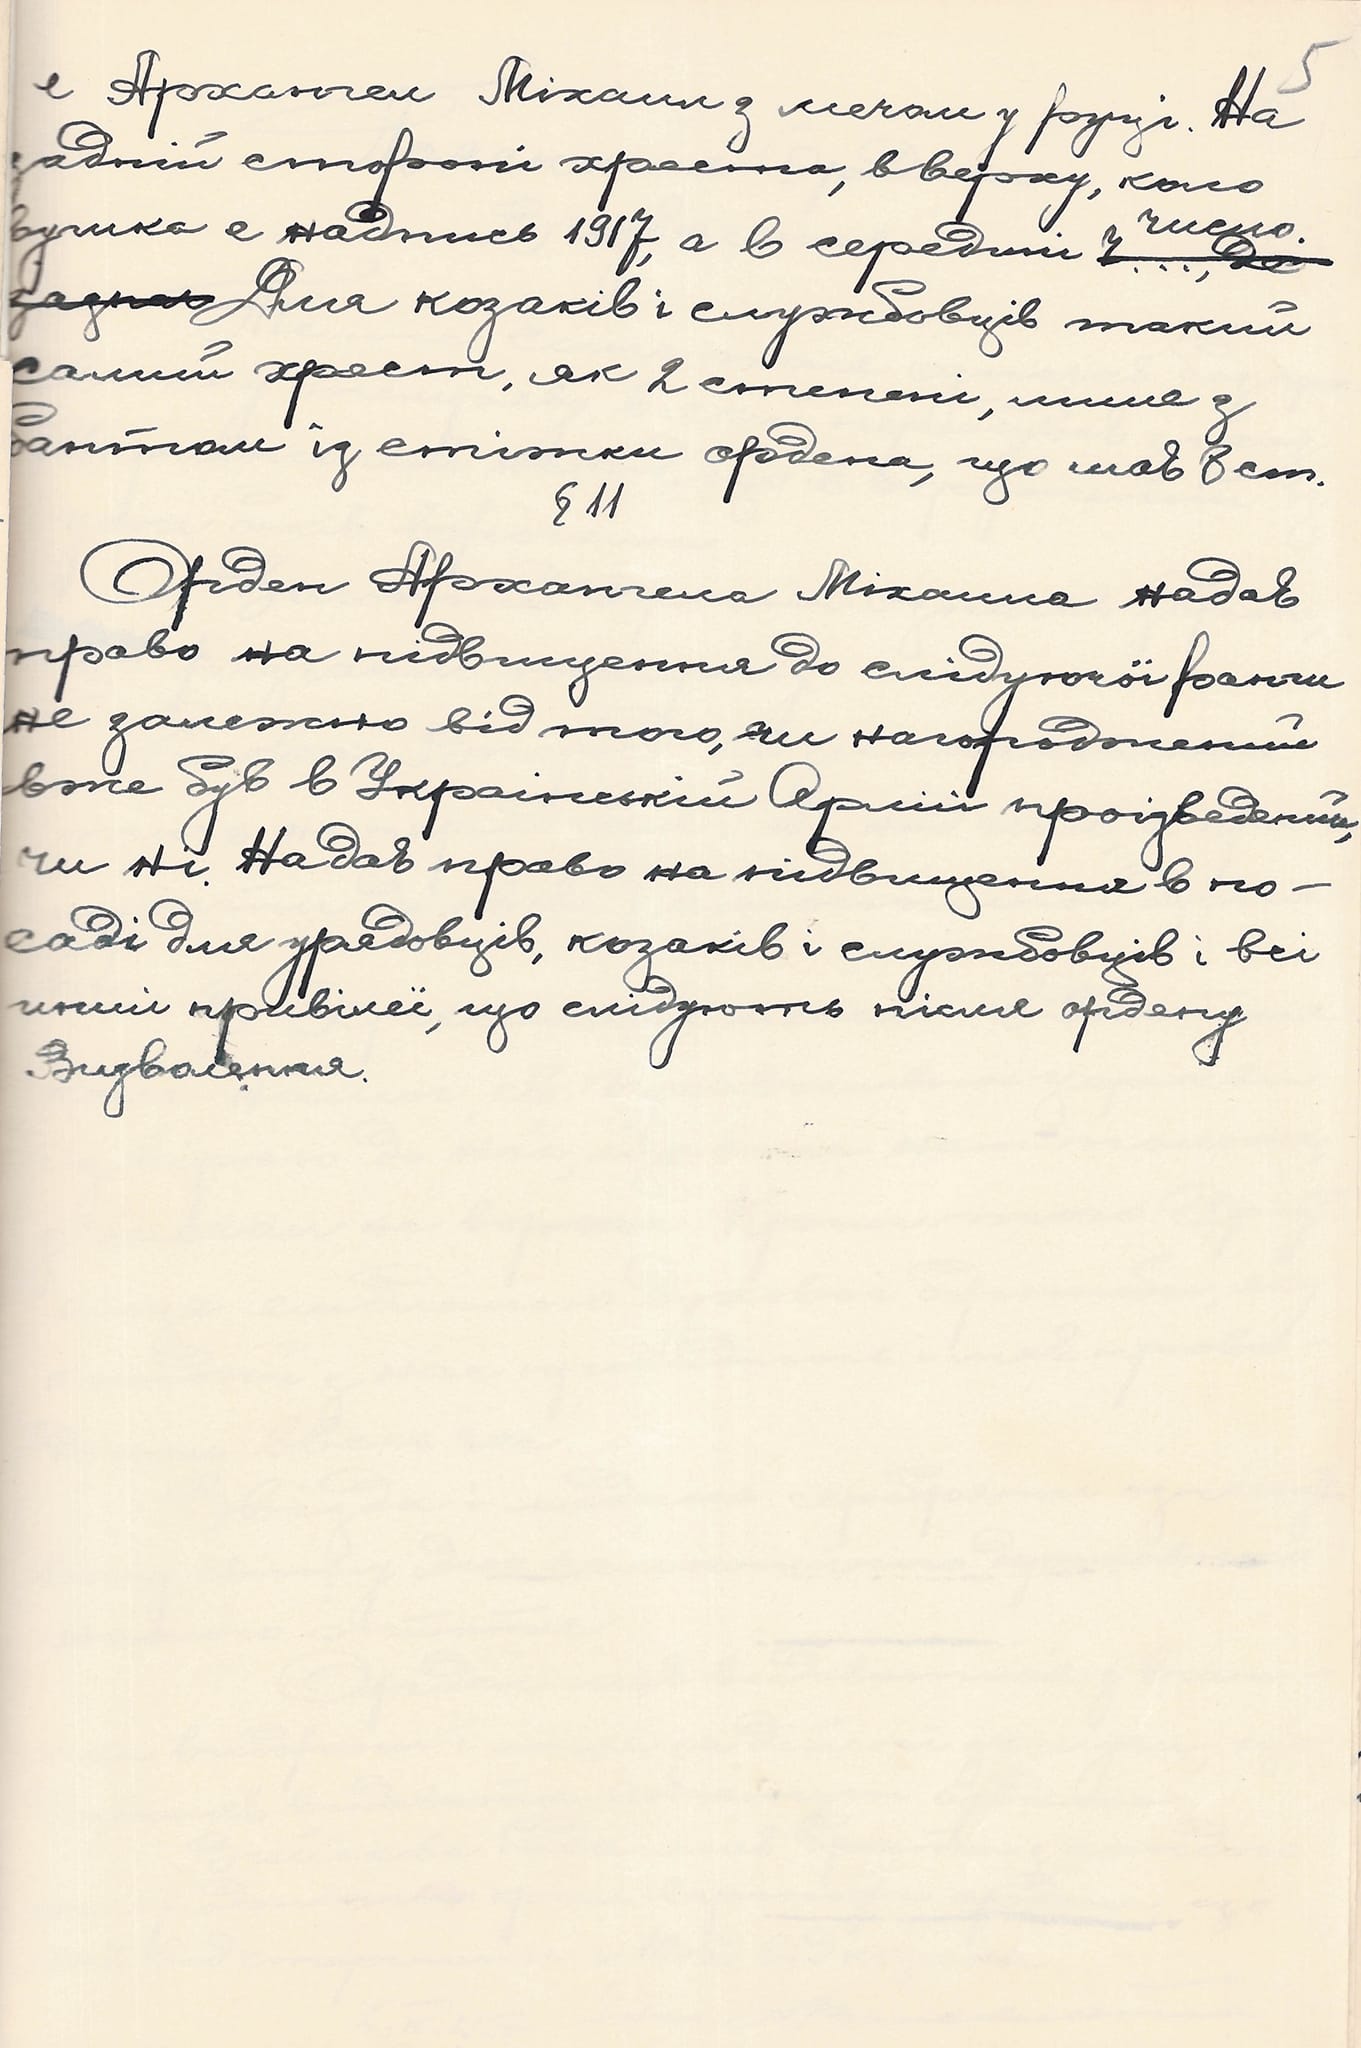 5
є Архангел Міхаил з мечом у руці. На
задній стороні хреста, вверху, коло
вушка є надпись 1917, а в середині число.
Для козаків і службовців такий
самий хрест, як 2 степені, лише з
бантом із стіжки ордена, що має 3 ст.
§ 11
Орден Архангела Міхаила надає
право на підвищення до слідуючої ранги
не залежно від того, чи нагороджений
вже був в Українській Армії проізведений,
чи ні. Надає право на підвищення в по-
саді для урядовців, козаків і службовців і всі
инші привілеї, що слідують після ордену
Визволення.